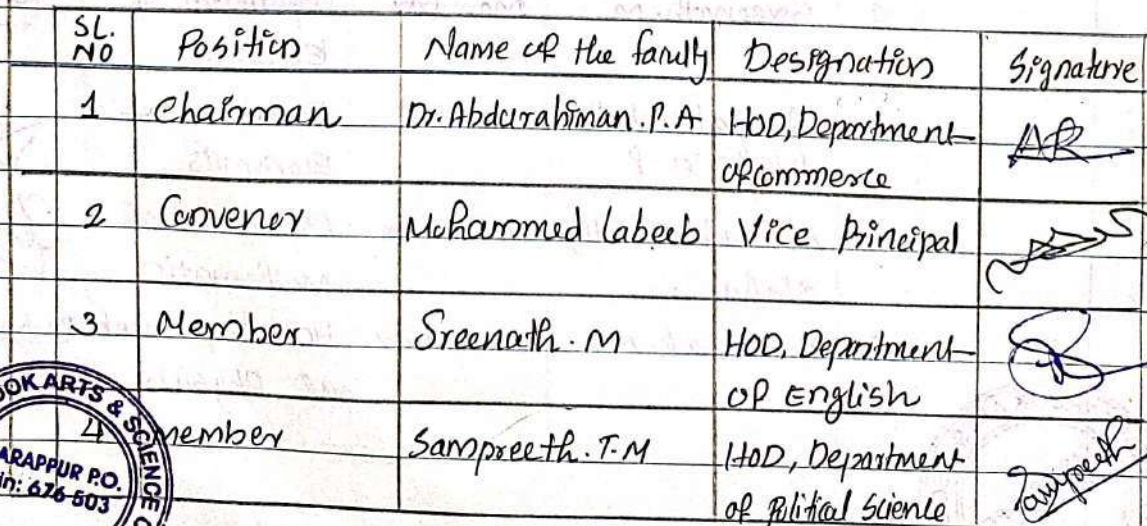 SL. NO Position Name of the faculty Designation Signature
1 Chairman Dr. Abdurahiman. P. A HOD, Department
of commerce
2 Convenor Mohammed Labeeb Vice Principal
3 Member Sreenath. M HOD, Department
of English
4 member Sampreeth. T. M HOD, Department
of Political Science
Sampreeth
OOK ARTS & SCIENCE
ARAPPUR P.O.
in: 676 503